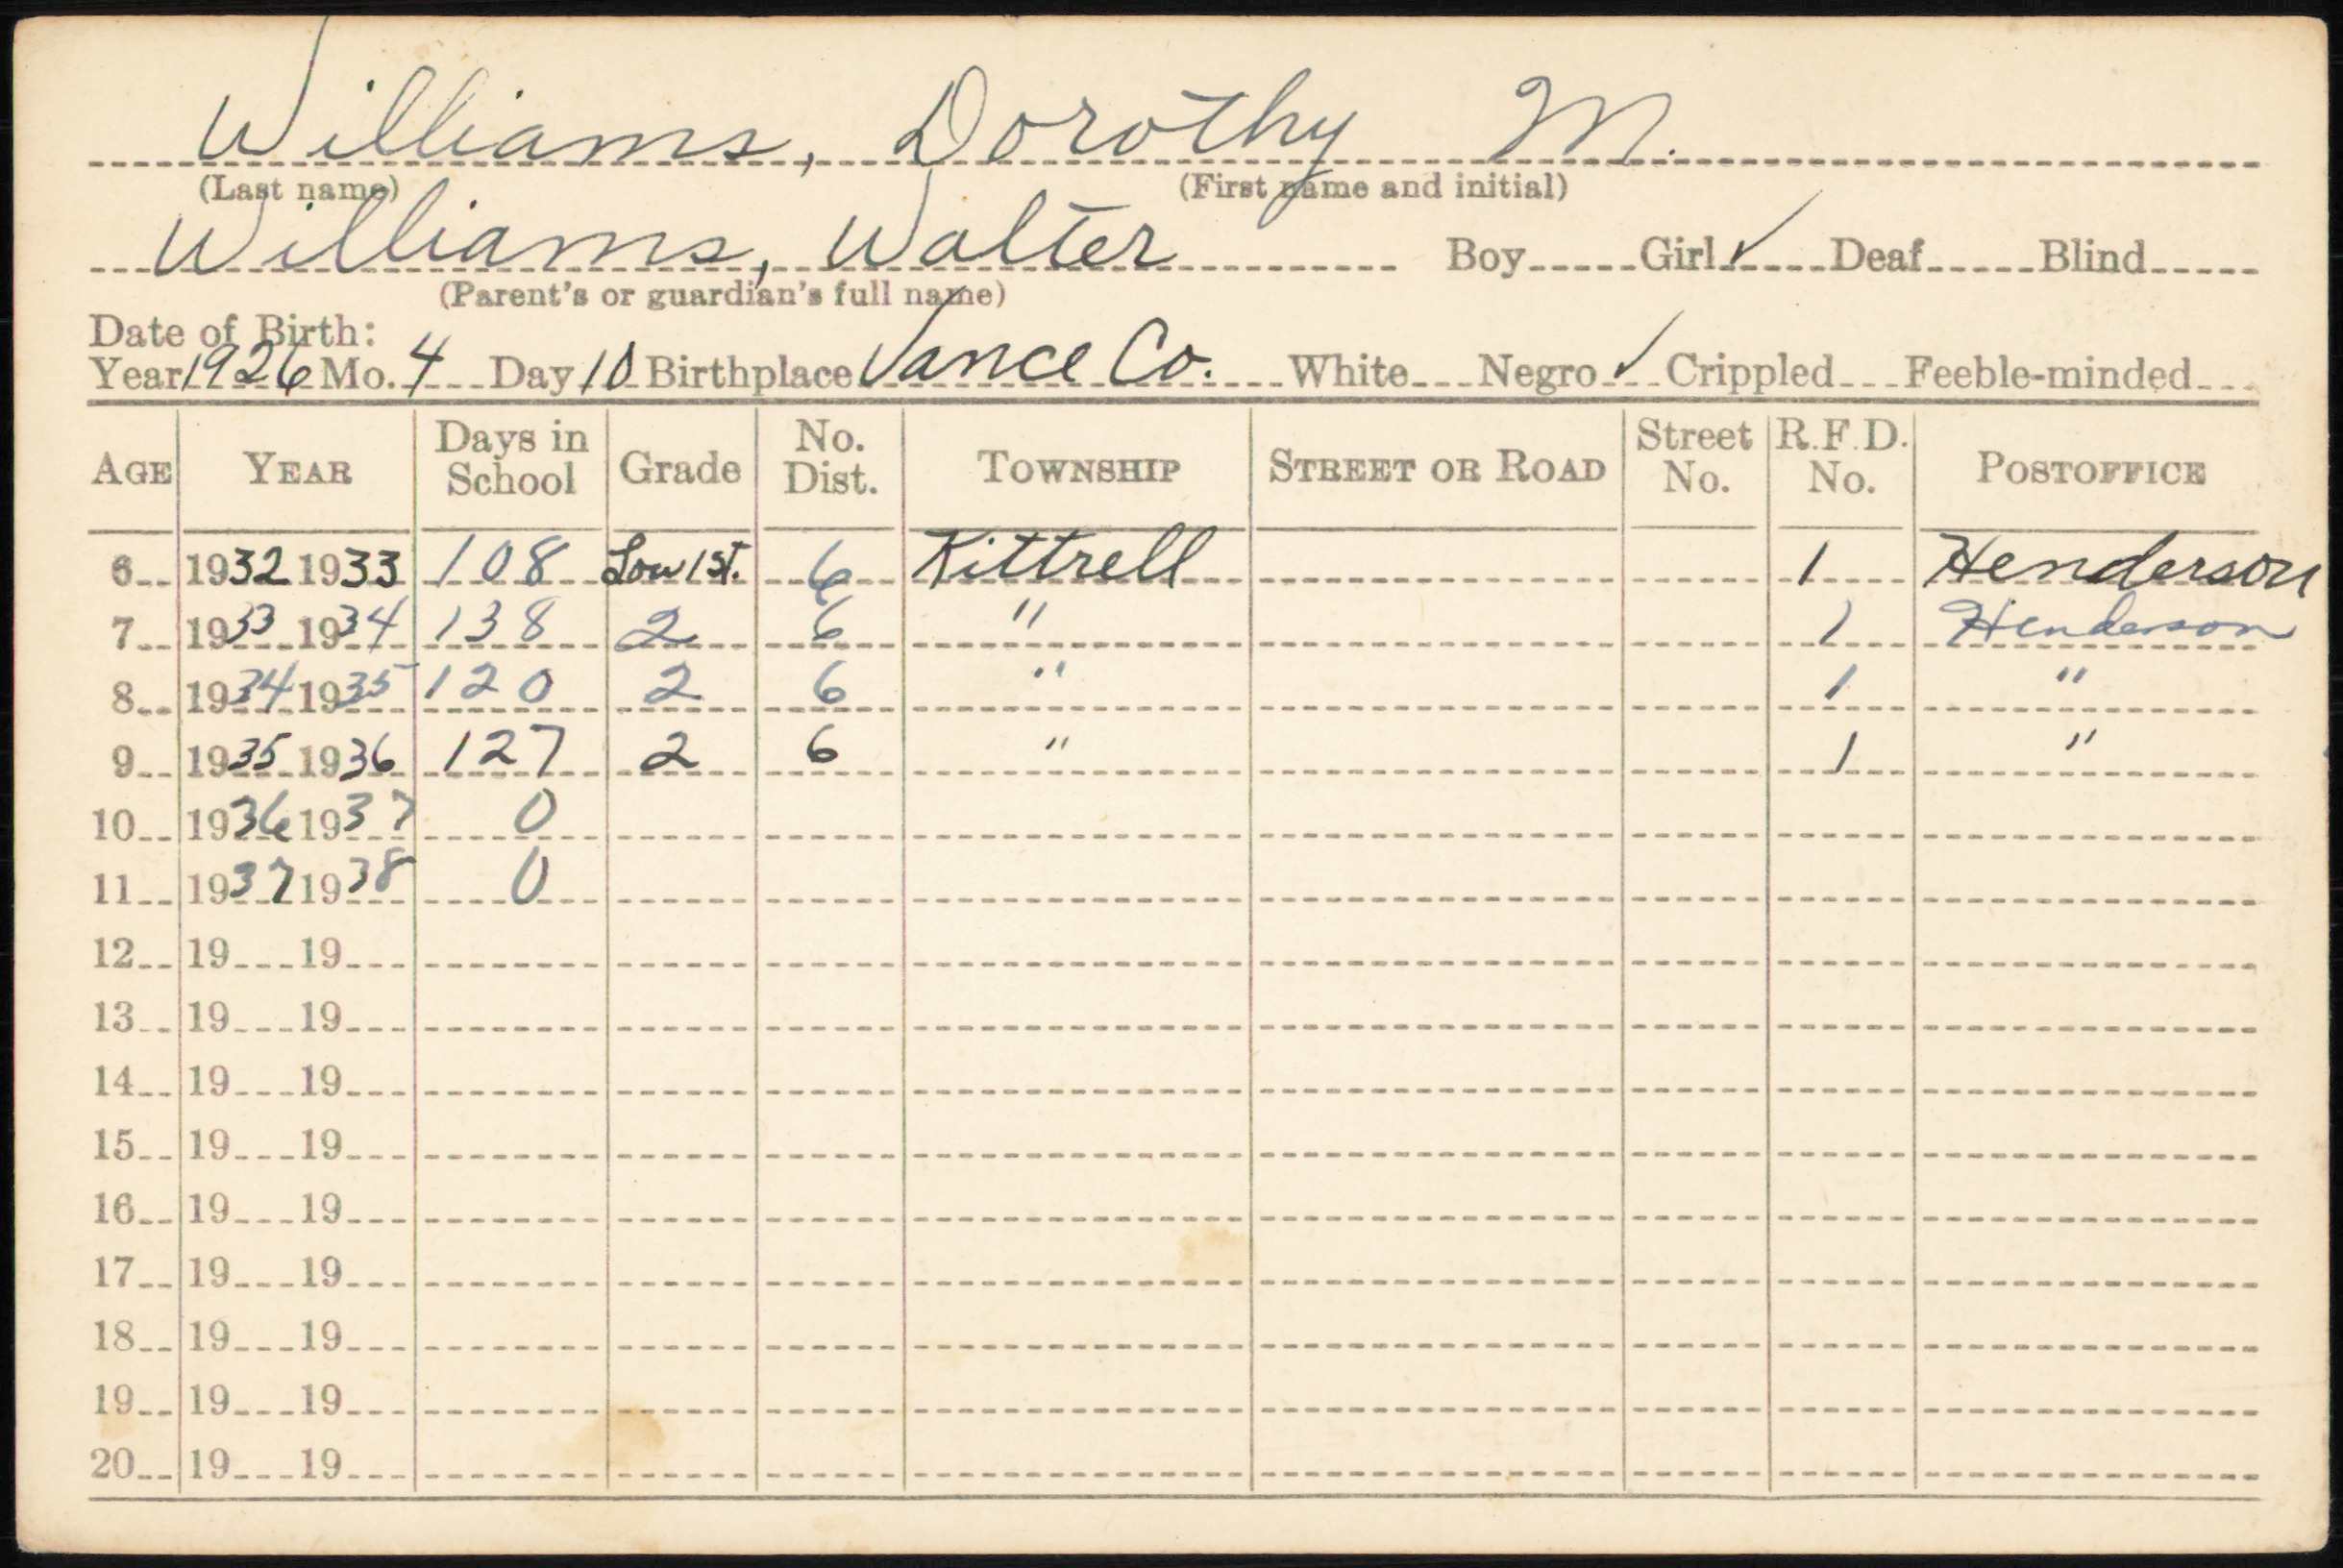 Williams, Dorothy M.
(Last name) (First name and initial)
Williams, Walter Boy Girl ✓ Deaf Blind
(Parent's or guardian's full name)
Date of Birth:
Year 1926 Mo. 4 Day 10 Birthplace Vance Co. White Negro ✓ Crippled Feeble-minded
AGE YEAR Days in School Grade No. Dist. TOWNSHIP STREET OR ROAD Street No. R.F.D. No. POSTOFFICE
6 1932 1933 108 Low 1st. 6 Kittrell 1 Henderson
7 1933 1934 138 2 6 " 1 Henderson
8 1934 1935 120 2 6 " 1 "
9 1935 1936 127 2 6 " 1 "
10 1936 1937 0
11 1937 1938 0
12 19 19
13 19 19
14 19 19
15 19 19
16 19 19
17 19 19
18 19 19
19 19 19
20 19 19